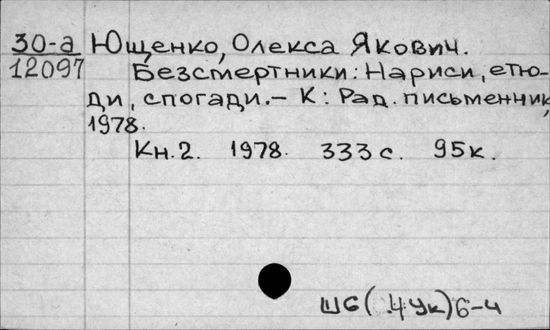 30-а Ющенко, Олекса Якович.
12097 Безсмертники: Нариси, етю-
ди, спогади.– К: Рад. письменник,
1978.
Кн.2. 1978. 333 с. 95к.
Ш6(.4Ук)6-4